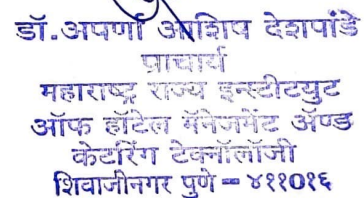 डॉ.अपर्णा आशिष देशपांडे
प्राचार्य
महाराष्ट्र राज्य इन्स्टीटयुट
ऑफ हॉटेल मॅनेजमेंट ॲण्ड
केटरिंग टेक्नॉलॉजी
शिवाजीनगर पुणे - ४११०१६